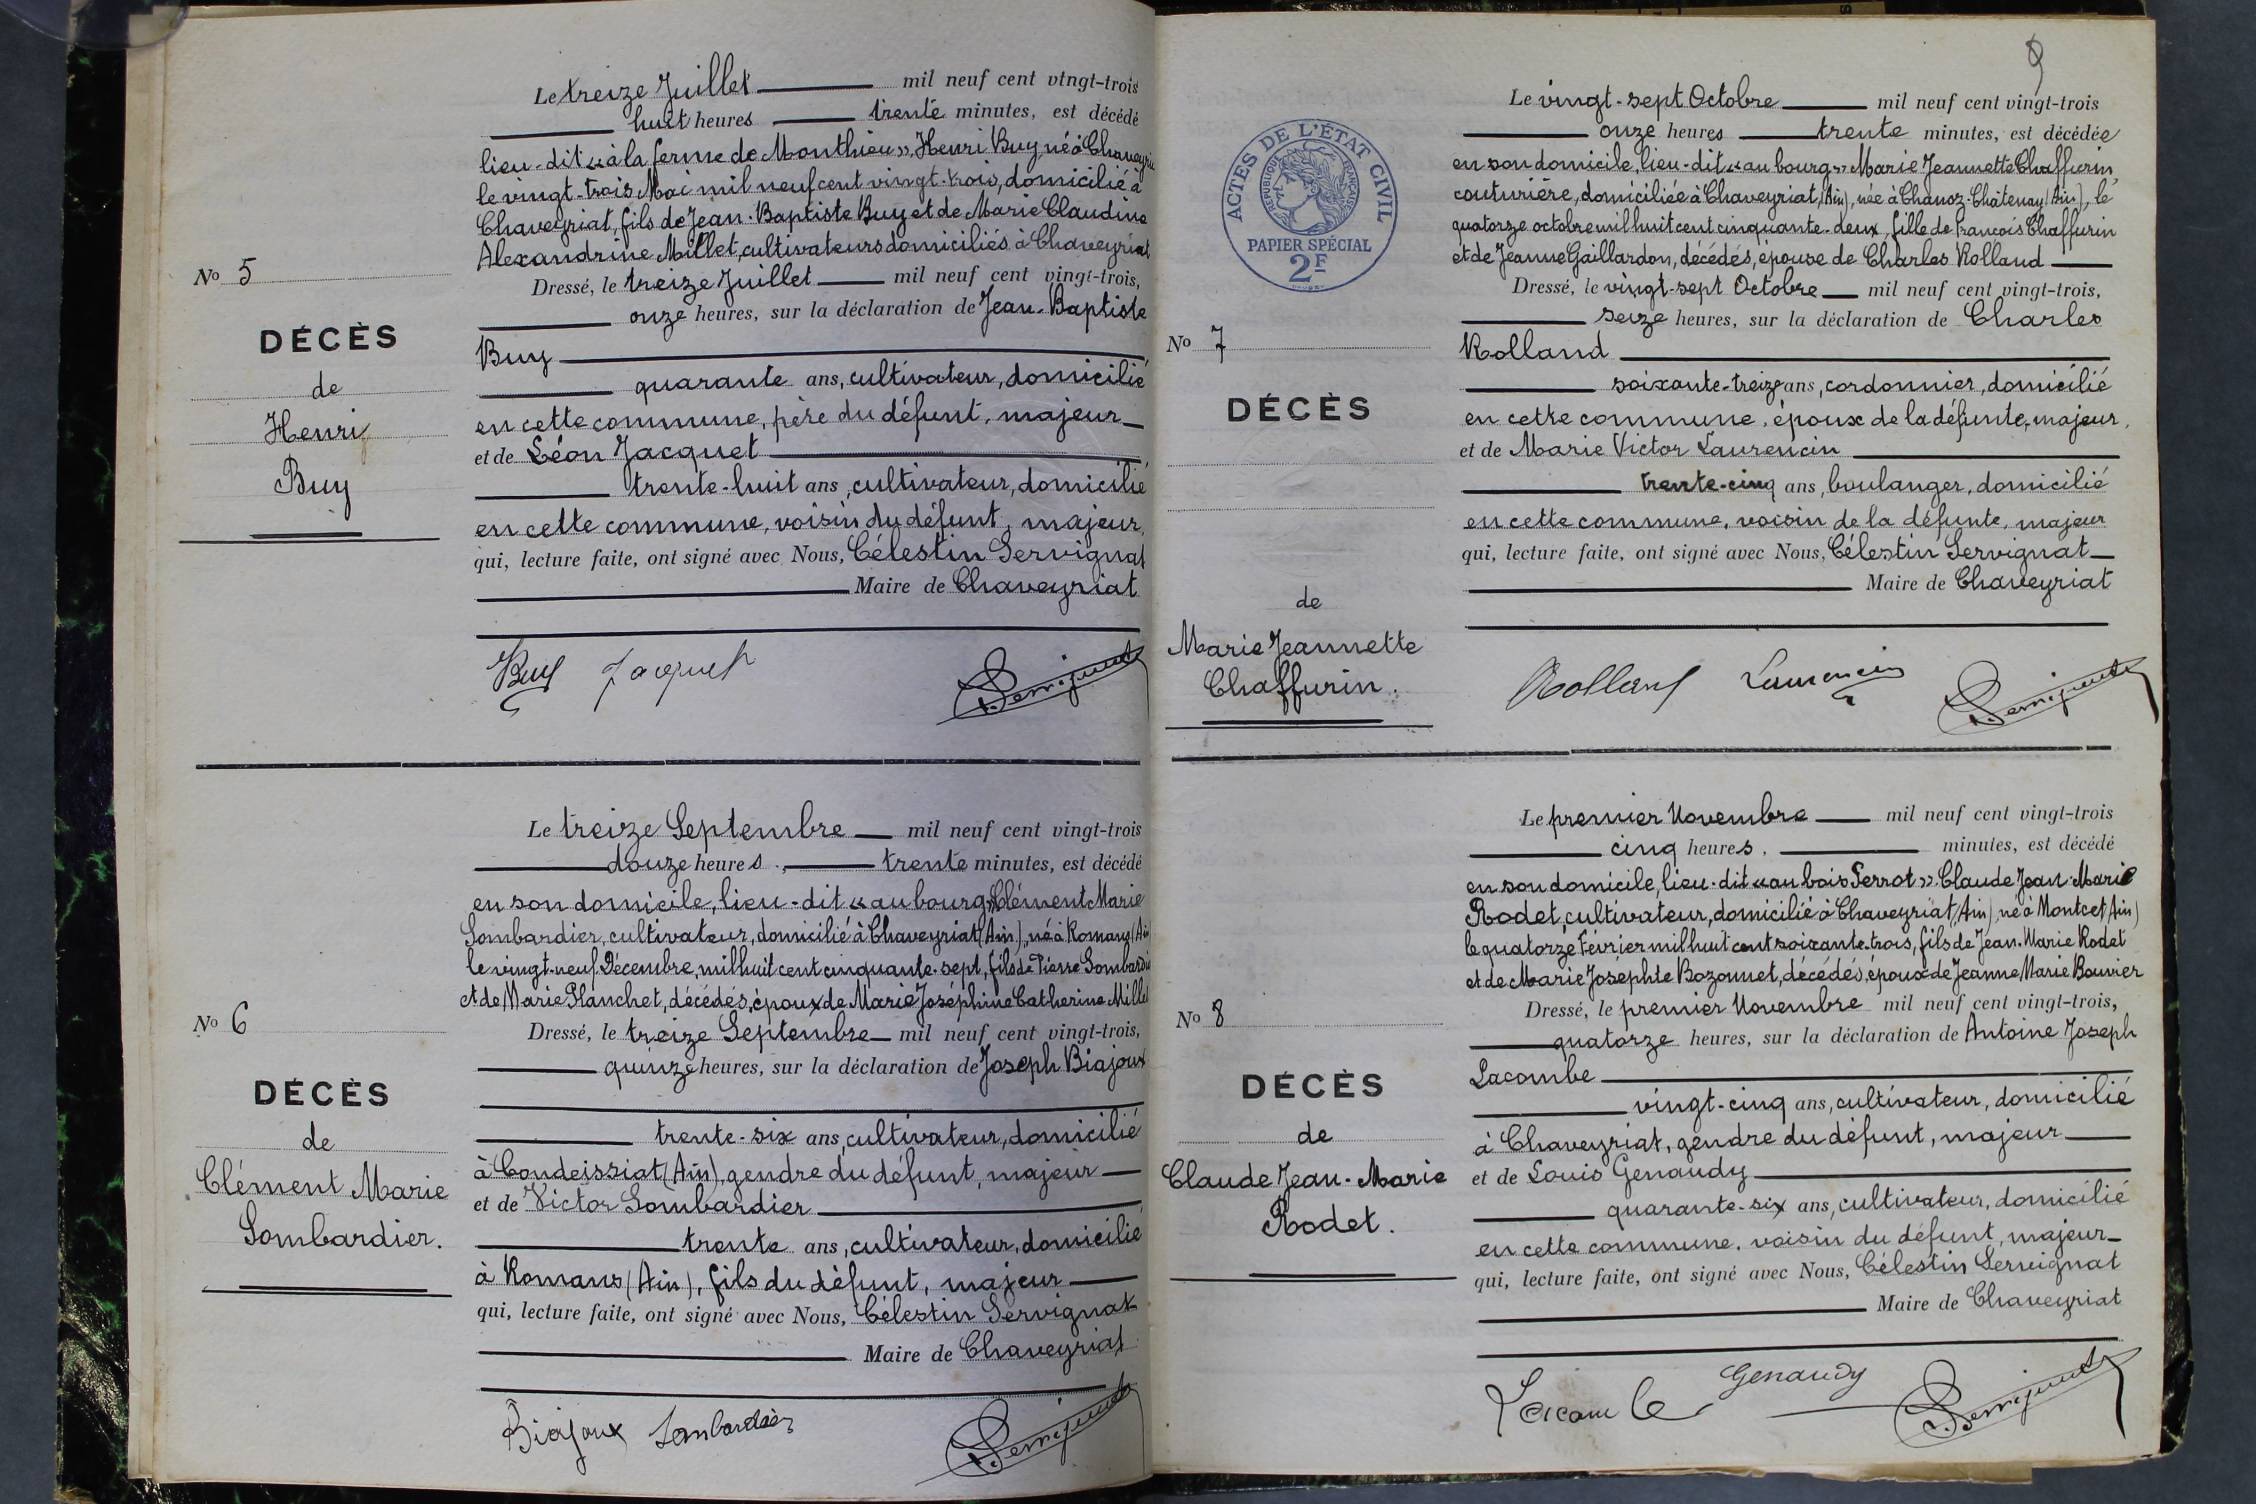 Le treize Juillet mil neuf cent vingt-trois
huit heures trente minutes, est décédé
lieu-dit « à la ferme de Monthieu », Henri Buy, né à Chaveyriat
le vingt-trois Mai mil neuf cent vingt-trois, domicilié à
Chaveyriat, fils de Jean-Baptiste Buy et de Marie Claudine
Alexandrine Millet, cultivateurs domiciliés à Chaveyriat
No 5
Dressé, le treize Juillet mil neuf cent vingt-trois,
onze heures, sur la déclaration de Jean-Baptiste
Buy
DÉCÈS
de
Henri
Buy
quarante ans, cultivateur, domicilié
en cette commune, père du défunt, majeur
et de Léon Jacquet
trente-huit ans, cultivateur, domicilié
en cette commune, voisin du défunt, majeur,
qui, lecture faite, ont signé avec Nous, Célestin Servignat
Maire de Chaveyriat
Buy Jacquet Servignat
Le treize Septembre mil neuf cent vingt-trois
douze heures, trente minutes, est décédé
en son domicile, lieu-dit « au bourg » Clément Marie
Lombardier, cultivateur, domicilié à Chaveyriat (Ain), né à Romans (Ain)
le vingt-neuf Décembre, mil huit cent cinquante-sept, fils de Pierre Lombardier
et de Marie Planchet, décédés, époux de Marie Joséphine Catherine Millet
No 6
Dressé, le treize Septembre mil neuf cent vingt-trois,
quinze heures, sur la déclaration de Joseph Biajoux
DÉCÈS
de
Clément Marie
Lombardier.
trente-six ans, cultivateur, domicilié
à Condeissiat (Ain), gendre du défunt, majeur
et de Victor Lombardier
trente ans, cultivateur, domicilié
à Romans (Ain), fils du défunt, majeur
qui, lecture faite, ont signé avec Nous, Célestin Servignat
Maire de Chaveyriat
Biajoux Lombardier Servignat
9
ACTES DE L'ÉTAT CIVIL
RÉPUBLIQUE FRANÇAISE
PAPIER SPÉCIAL
2F
Le vingt-sept Octobre mil neuf cent vingt-trois
onze heures trente minutes, est décédée
en son domicile, lieu-dit « au bourg » Marie Jeannette Chaffurin,
couturière, domiciliée à Chaveyriat (Ain), née à Chanoz-Châtenay (Ain), le
quatorze octobre mil huit cent cinquante-deux, fille de François Chaffurin
et de Jeanne Gaillardon, décédés, épouse de Charles Rolland
Dressé, le vingt-sept Octobre mil neuf cent vingt-trois,
seize heures, sur la déclaration de Charles
Rolland
No 7
DÉCÈS
de
Marie Jeannette
Chaffurin.
soixante-treize ans, cordonnier, domicilié
en cette commune, époux de la défunte, majeur,
et de Marie Victor Laurencin
trente-cinq ans, boulanger, domicilié
en cette commune, voisin de la défunte, majeur
qui, lecture faite, ont signé avec Nous, Célestin Servignat
Maire de Chaveyriat
Rolland Laurencin Servignat
Le premier Novembre mil neuf cent vingt-trois
cinq heures, minutes, est décédé
en son domicile, lieu-dit « au bois Perrot » Claude Jean-Marie
Rodet, cultivateur, domicilié à Chaveyriat (Ain), né à Montcet (Ain)
le quatorze Février mil huit cent soixante-trois, fils de Jean-Marie Rodet
et de Marie Josephte Bozonnet, décédés, époux de Jeanne Marie Bouvier
No 8
Dressé, le premier Novembre mil neuf cent vingt-trois,
quatorze heures, sur la déclaration de Antoine Joseph
Lacombe
DÉCÈS
de
Claude Jean-Marie
Rodet.
vingt-cinq ans, cultivateur, domicilié
à Chaveyriat, gendre du défunt, majeur
et de Louis Genaudy
quarante-six ans, cultivateur, domicilié
en cette commune, voisin du défunt, majeur
qui, lecture faite, ont signé avec Nous, Célestin Servignat
Maire de Chaveyriat
Lacombe Genaudy Servignat